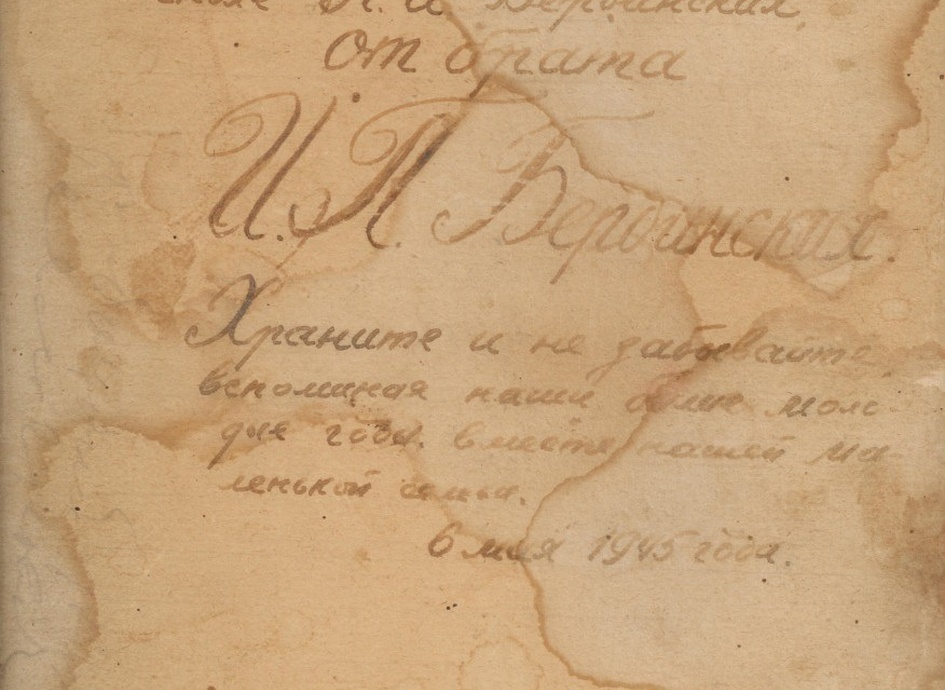 А. И. Бербинских
От брата
И. П. Бербинских.
Храните и не забывайте,
вспоминая наши были моло-
дые года. вместе нашей ма-
ленькой семьи.
6 мая 1945 года.